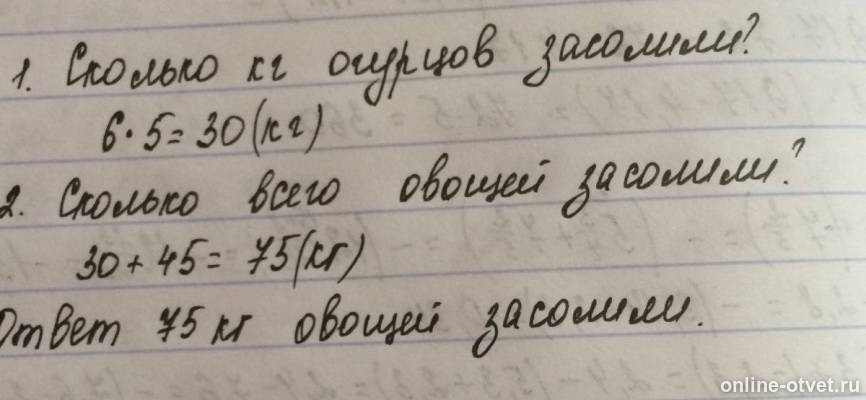 1. Сколько кг огурцов засолили?
6·5=30(кг)
2. Сколько всего овощей засолили?
30+45=75(кг)
Ответ 75 кг овощей засолили.
online-otvet.ru